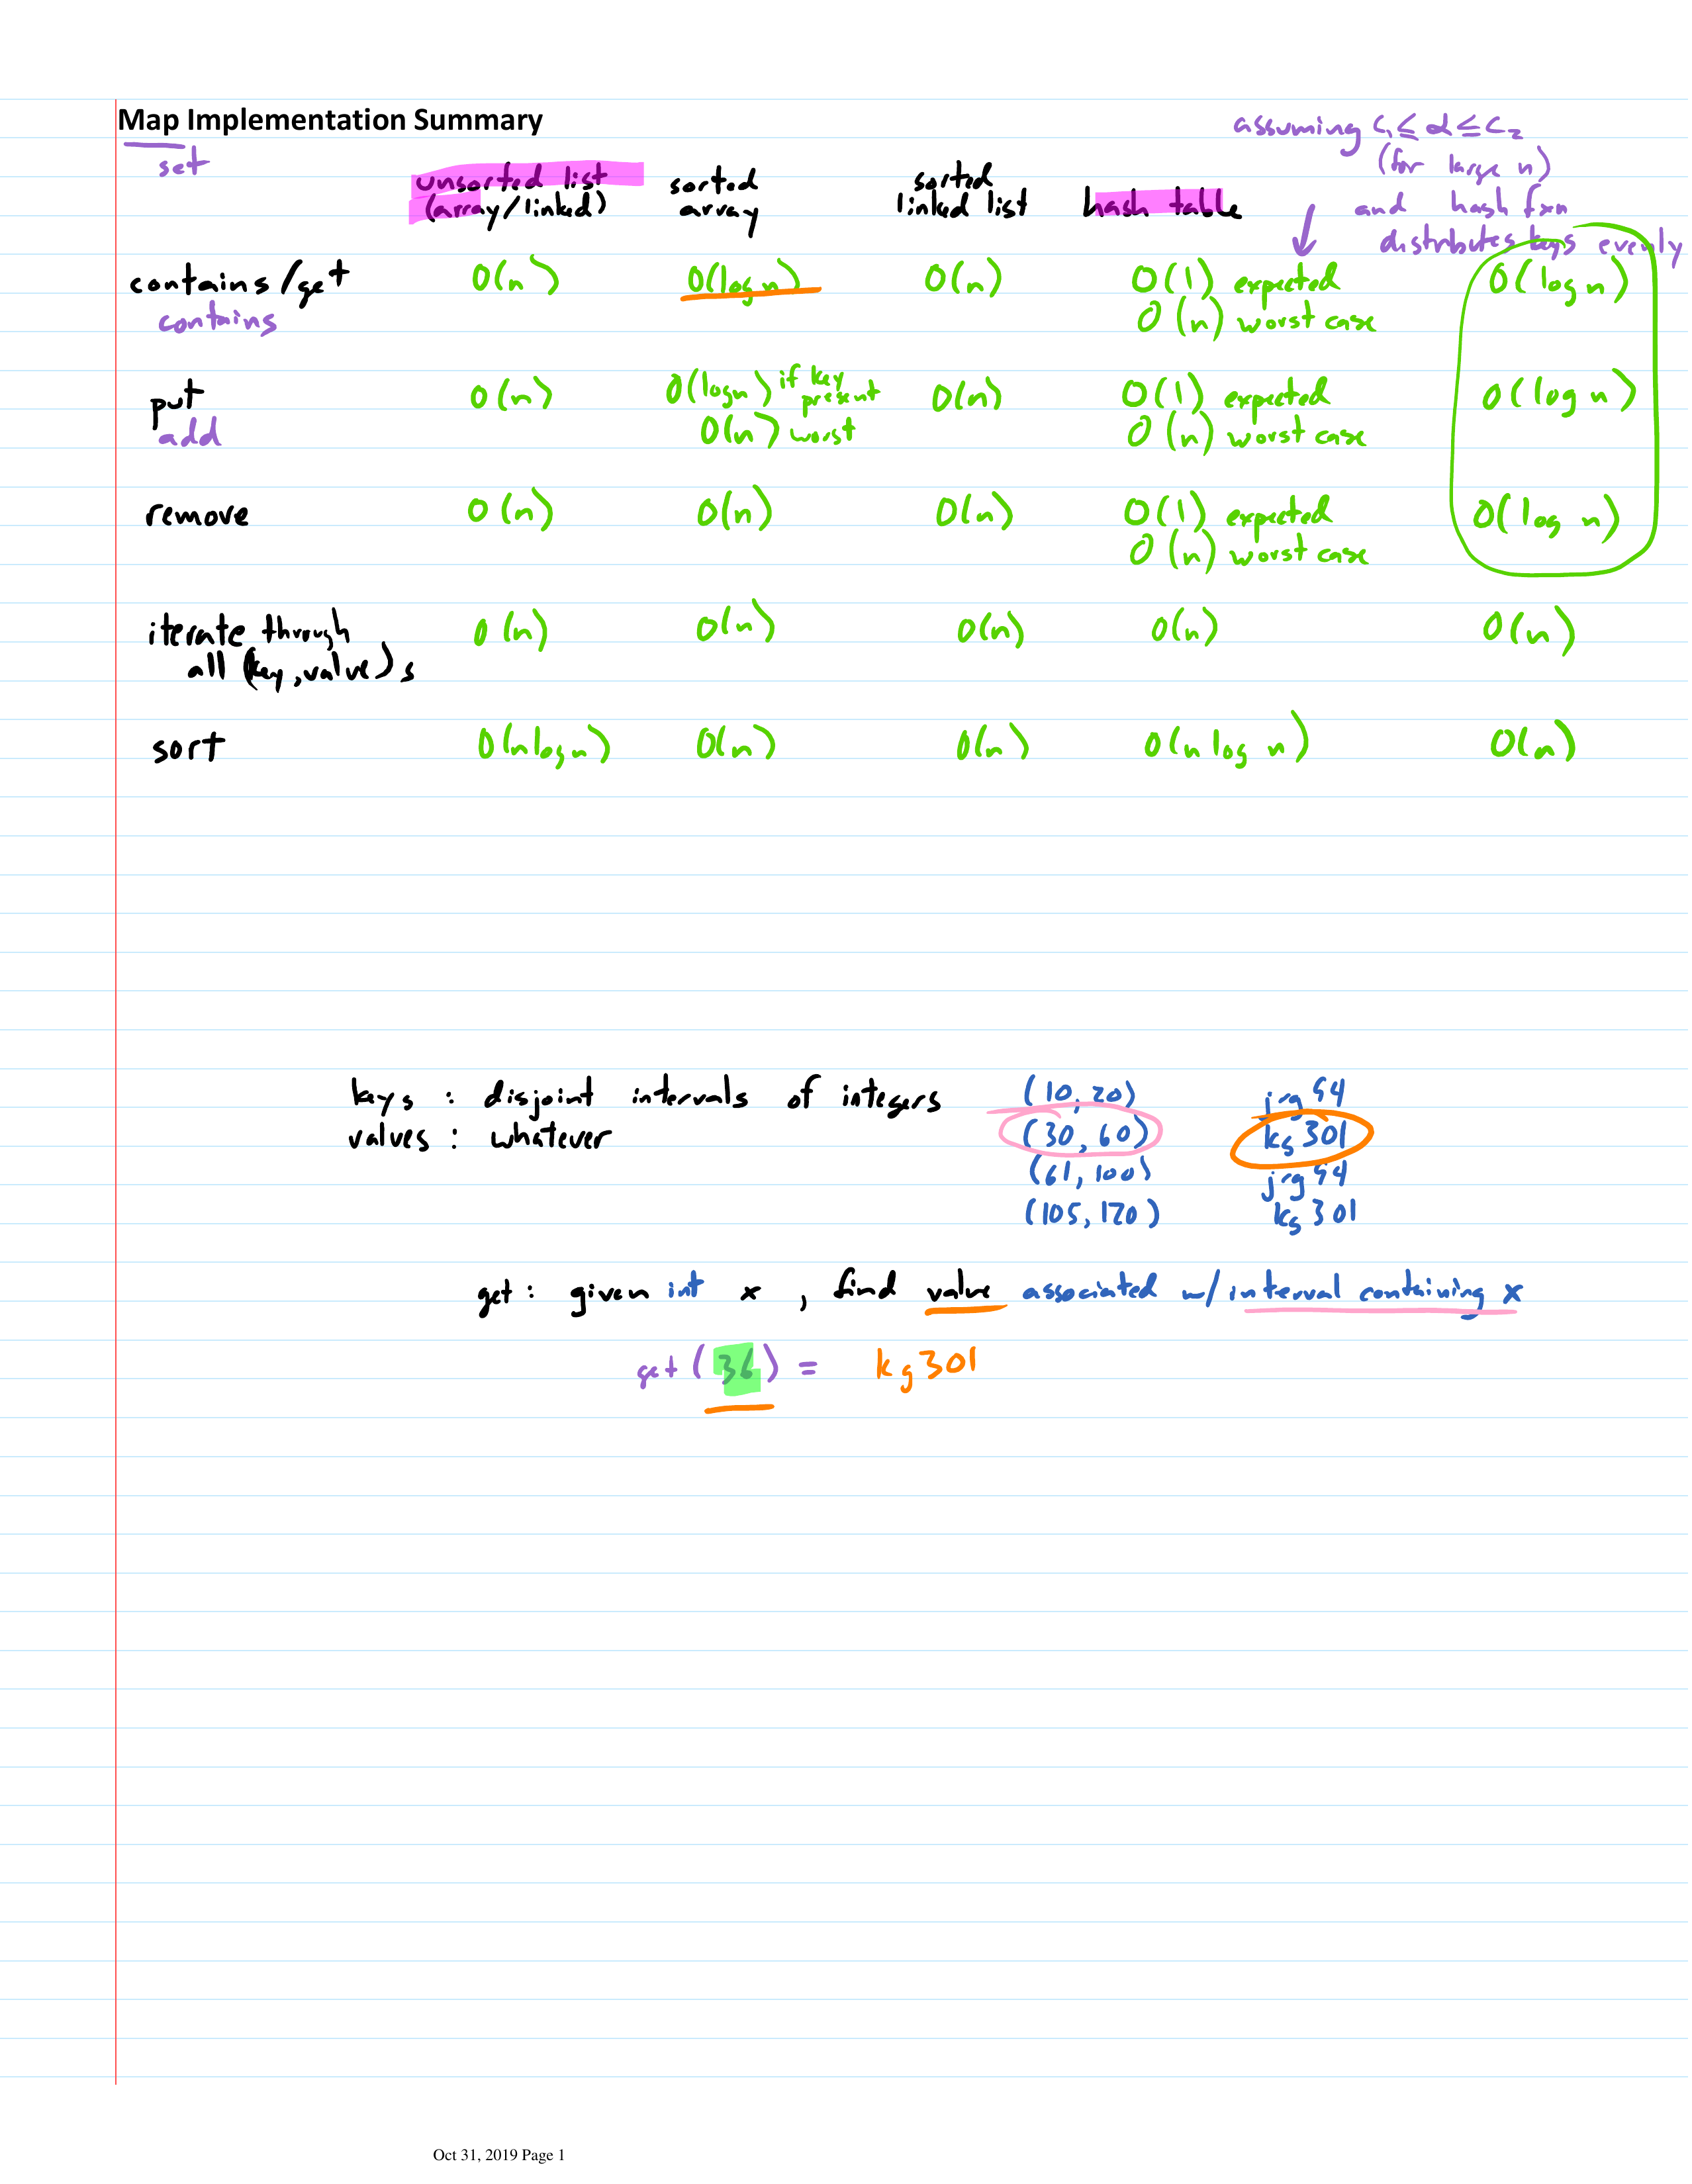 Map Implementation Summary
set
assuming c₁ ≤ α ≤ c₂
(for large n)
and hash fxn
distributes keys evenly
unsorted list
(array/linked)
sorted
array
sorted
linked list
hash table
contains/get
contains
O(n)
O(log n)
O(n)
O(1) expected
O(n) worst case
O(log n)
put
add
O(n)
O(log n) if key present
O(n) worst
O(n)
O(1) expected
O(n) worst case
O(log n)
remove
O(n)
O(n)
O(n)
O(1) expected
O(n) worst case
O(log n)
iterate through
all (key, value)s
O(n)
O(n)
O(n)
O(n)
O(n)
sort
O(n log n)
O(n)
O(n)
O(n log n)
O(n)
keys : disjoint intervals of integers
values : whatever
(10, 20) jrg94
(30, 60) kg301
(61, 100) jrg94
(105, 120) kg301
get : given int x , find value associated w/ interval containing x
get (36) = kg301
Oct 31, 2019 Page 1